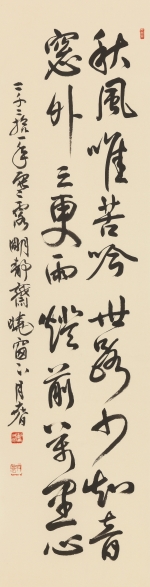 秋風唯苦吟世路少知音
窓外三更雨燈前萬里心
二千二拾一年寒露明静齋曉窗